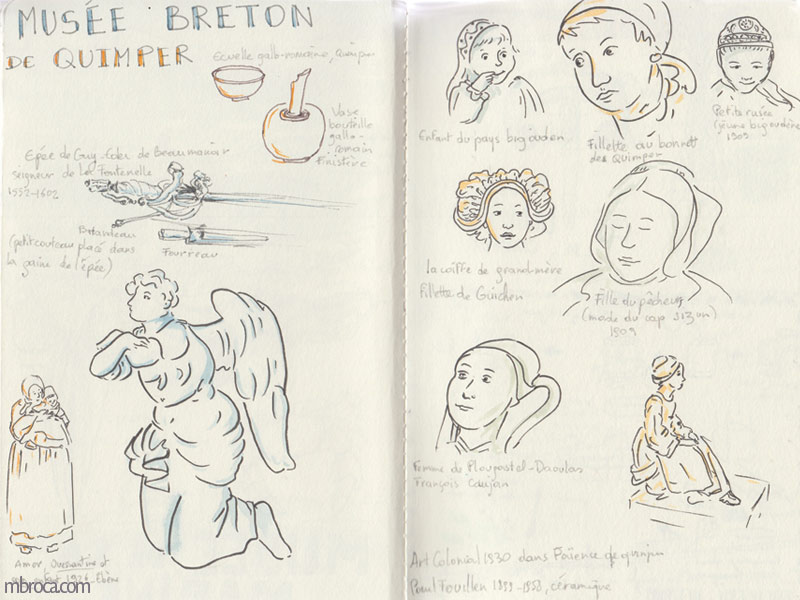 MUSÉE BRETON
DE QUIMPER
Ecuelle gallo-romaine, Quimper
Vase
bouteille
gallo-
romain
Finistère
Epée de Guy Eder de Beaumanoir
seigneur de La Fontenelle
1552-1602
(petit couteau placé dans
la gaine de l'épée)
Fourreau
Amor, Ouessantine et
son enfant Ebène
mbroca.com
Enfant du pays bigouden
Fillette au bonnet
de Quimper
Petite rusée
(jeune bigoudène)
1909
La coiffe de grand-mère
Fillette de Guichen
Fille du pêcheur
(mode du cap sizun)
1909
Femme de Plougastel-Daoulas
François Caujan
Art Colonial 1930 dans Faïence de quimper
Paul Fouillen céramique